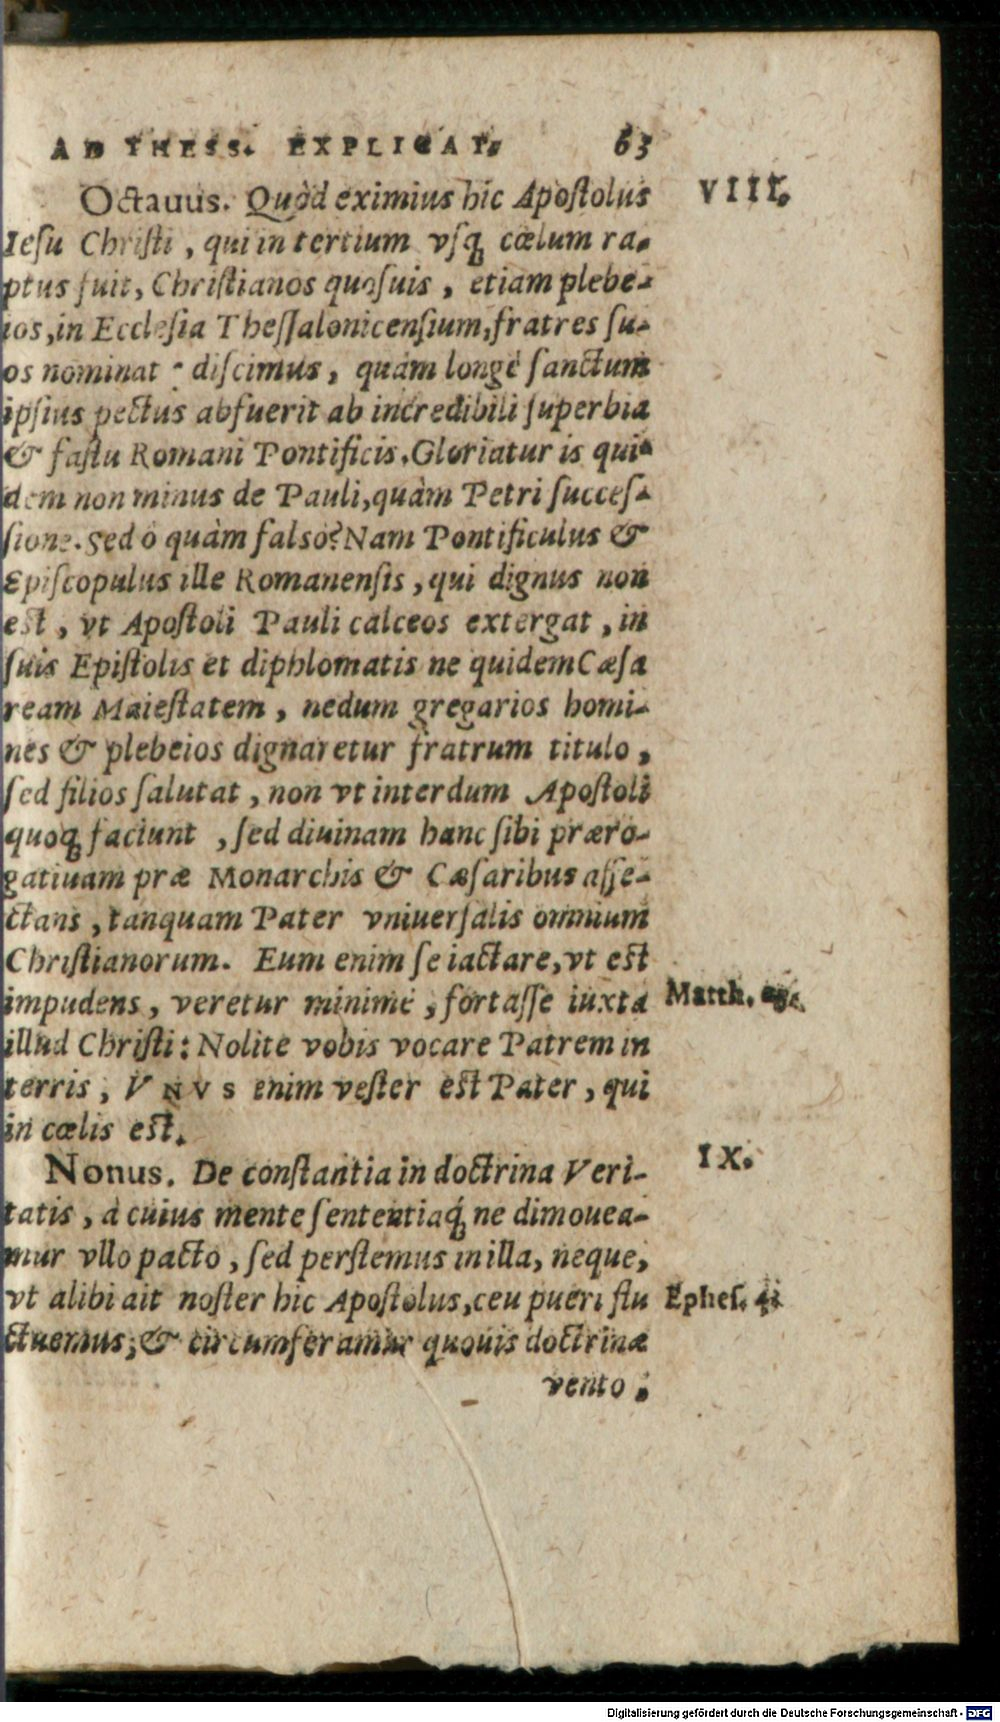 AD THESS. EXPLICAT. 63
Octauus. Quòd eximius hic Apostolus VIII.
Iesu Christi, qui in tertium vsq; cœlum ra-
ptus fuit, Christianos quosuis, etiam plebe-
ios, in Ecclesia Thessalonicensium, fratres su-
os nominat: discimus, quàm longè sanctum
ipsius pectus abfuerit ab incredibili superbia
& fastu Romani Pontificis. Gloriatur is qui-
dem non minus de Pauli, quàm Petri succes-
sione. Sed ò quàm falsò? Nam Pontificulus &
Episcopulus ille Romanensis, qui dignus non
est, vt Apostoli Pauli calceos extergat, in
suis Epistolis et diphlomatis ne quidem Cæsa
ream Maiestatem, nedum gregarios homi-
nes & plebeios dignaretur fratrum titulo,
sed filios salutat, non vt interdum Apostoli
quoq; faciunt, sed diuinam hanc sibi præro-
gatiuam præ Monarchis & Cæsaribus affe-
ctans, tanquam Pater vniuersalis omnium
Christianorum. Eum enim se iactare, vt est
impudens, veretur minimè, fortasse iuxta Matth.
illud Christi: Nolite vobis vocare Patrem in
terris, VNVS enim vester est Pater, qui
in cœlis est.
Nonus. De constantia in doctrina Veri- IX.
tatis, à cuius mente sententiaq́; ne dimouea-
mur vllo pacto, sed perstemus in illa, neque,
vt alibi ait noster hic Apostolus, ceu pueri flu Ephes.
ctuemus; & circumferamur quouis doctrinæ
vento;
Digitalisierung gefördert durch die Deutsche Forschungsgemeinschaft - DFG